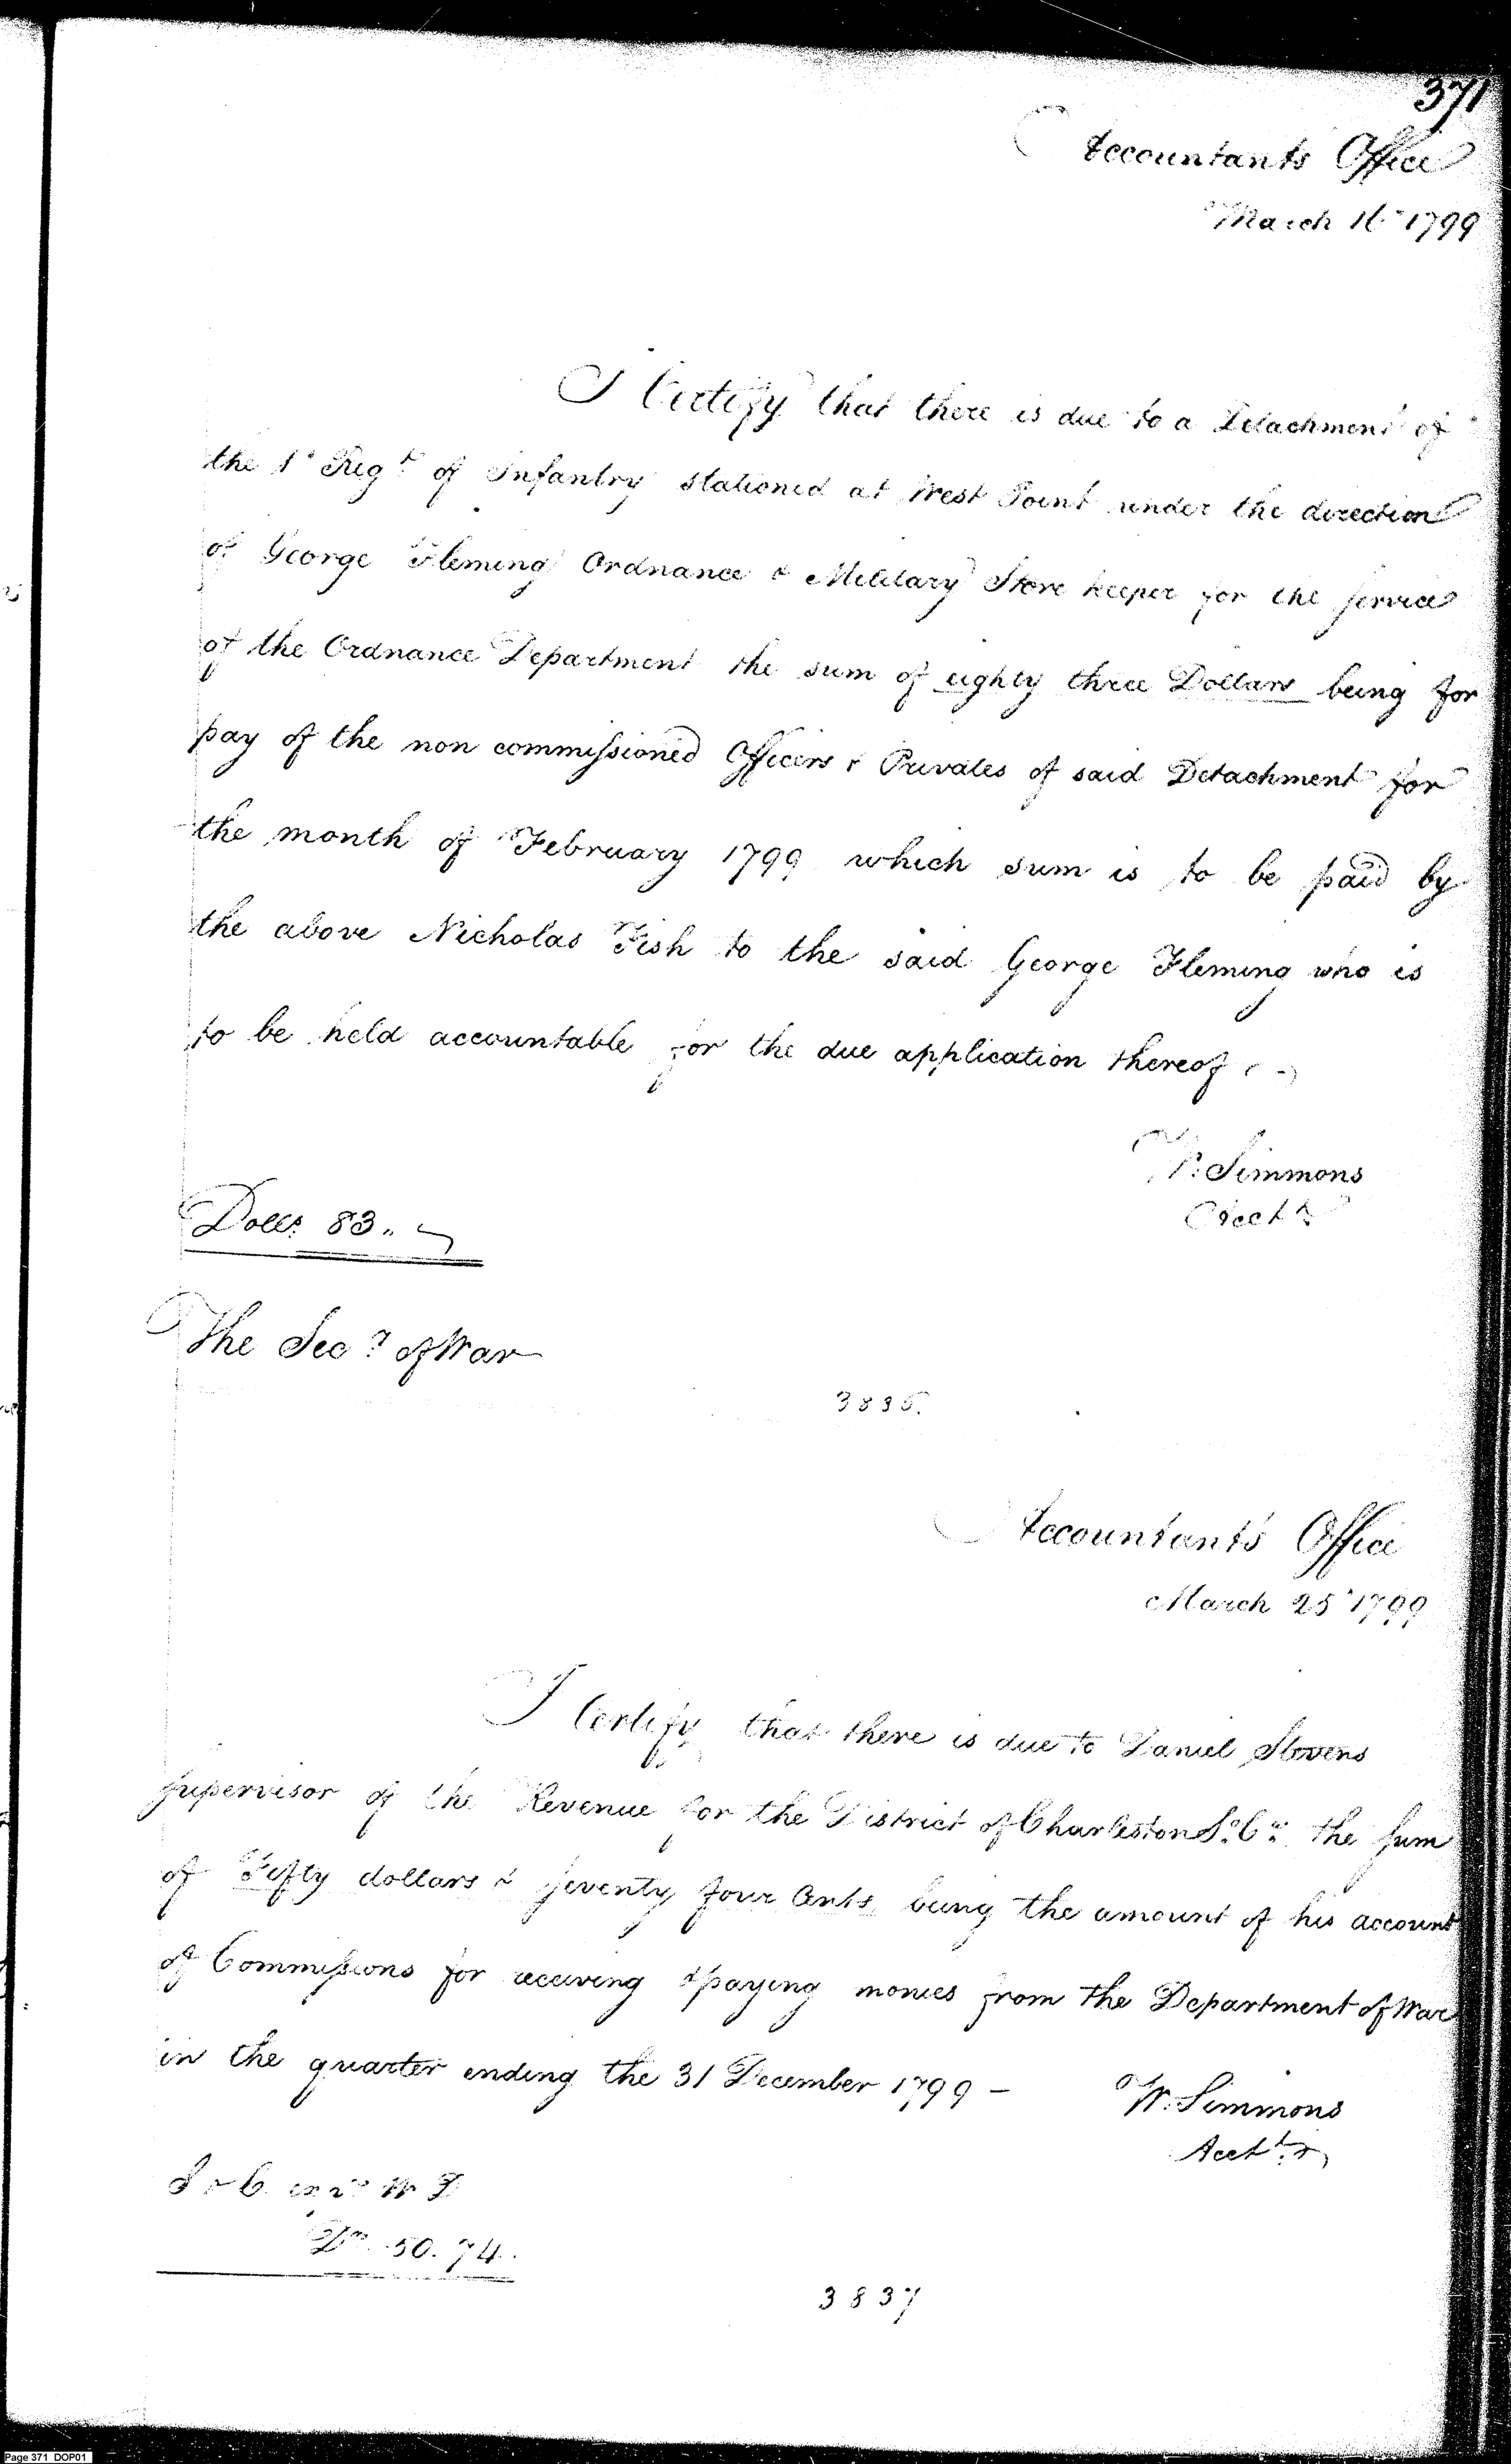 371
Accountants Office
March 16 1799
I Certify that there is due to a Detachment of
the 1st Regt of Infantry stationed at West Point under the direction
of George Fleming Ordnance & Military Store keeper for the service
of the Ordnance Department the sum of eighty three Dollars being for
pay of the non commissioned Officers & Privates of said Detachment for
the month of February 1799 which sum is to be paid by
the above Nicholas Fish to the said George Fleming who is
to be held accountable for the due application thereof
W. Simmons
Acctt
Dolls. 83..
The Secy of War
3835.
Accountants Office
March 25 1799
I Certify that there is due to Daniel Stevens
supervisor of the Revenue for the District of Charleston So. Ca. the sum
of Fifty dollars & seventy four Cents being the amount of his account
of Commissions for receiving & paying monies from the Department of War
in the quarter ending the 31 December 1799 -
W. Simmons
Acctt
W D
Drs. 50.74.
3837
Page 371 DOP01